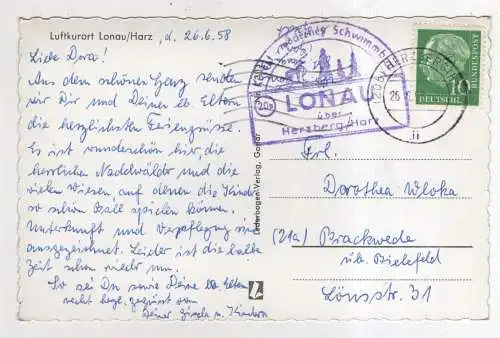 Luftkurort Lonau/Harz, d. 26.6.58
Liebe Dora!
Aus dem schönen Harz senden
wir Dir und Deinen lb. Eltern
die herzlichsten Feriengrüsse.
Es ist wunderschön hier, die
herrlichen Nadelwälder und die
vielen Wiesen auf denen die Kinder
so schön Ball spielen können.
Unterkunft und Verpflegung sind
ausgezeichnet. Leider ist die halbe
Zeit schon wieder um.
So sei Du sowie Deine lb. Eltern
recht hzgl. gegrüsst von
Deiner Gisela u. Kindern
Lederbogen-Verlag, Goslar
Schwimmb
(20a)
LONAU
über
Herzberg/Harz
HERZBERG
26
ii
10
DEUTSCHE
BUNDESPOST
Frl.
Dorothea Wloka
(21a) Brackwede
üb. Bielefeld
Lönsstr. 31